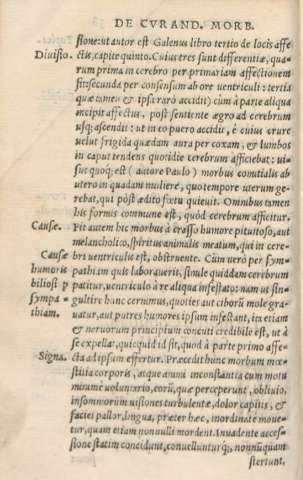 DE CVRAND. MORB.
sione: ut autor est Galenus libro tertio de locis affe
Diuisio. ctis, capite quinto. Cuius tres sunt differentiæ, qua-
rum prima in cerebro per primariam affectionem
fit: secunda per consensum ab ore ventriculi: tertia
quæ tamen & ipsa raro accidit) cùm à parte aliqua
incipit affectus, post sentiente ægro ad cerebrum
usq; ascendit: ut in eo puero accidit, è cuius crure
uelut frigida quædam aura per coxam, & lumbos
in caput tendens quotidie cerebrum afficiebat: ui-
sus quoq; est (autore Paulo) morbus comitialis ab
utero in quadam muliere, quo tempore uterum ge-
rebat, qui pòst ædito fœtu quieuit. Omnibus tamen
his formis commune est, quòd cerebrum afficitur.
Cause. Fit autem hic morbus à crasso humore pituitoso, aut
melancholico, spiritus animalis meatum, qui in cere-
Causæ bri ventriculis est, obstruente. Cùm verò per sym-
humoris pathiam quis laborauerit, simule quiddem cerebrum
biliosi p patitur, uentriculo à re aliqua infestato: nam ut sin-
sympa- gultire hanc cernumus, quoties aut ciborũ mole gra-
thiam. uatur, aut putres humores ipsum infestant, ita etiam
& neruorum principium concuti credibile est, ut à
se expellat, quicquid id sit, quod à parte primo affe-
Signa. cta ad ipsam effertur. Præcedit hunc morbum mœ-
stitia corporis, atque animi inconstantia cum motu
minumè uoluntario, eorũ, quæ perceperunt, obliuio,
insomniorum uisiones turbulentæ, dolor capitis, &
faciei pallor, lingua, præter hæc, inordinatè moue-
tur, quam etiam nonnulli mordent. Inuadente acces-
sione statim concidunt, conuelluntur q;, nonnūquam
stertunt.